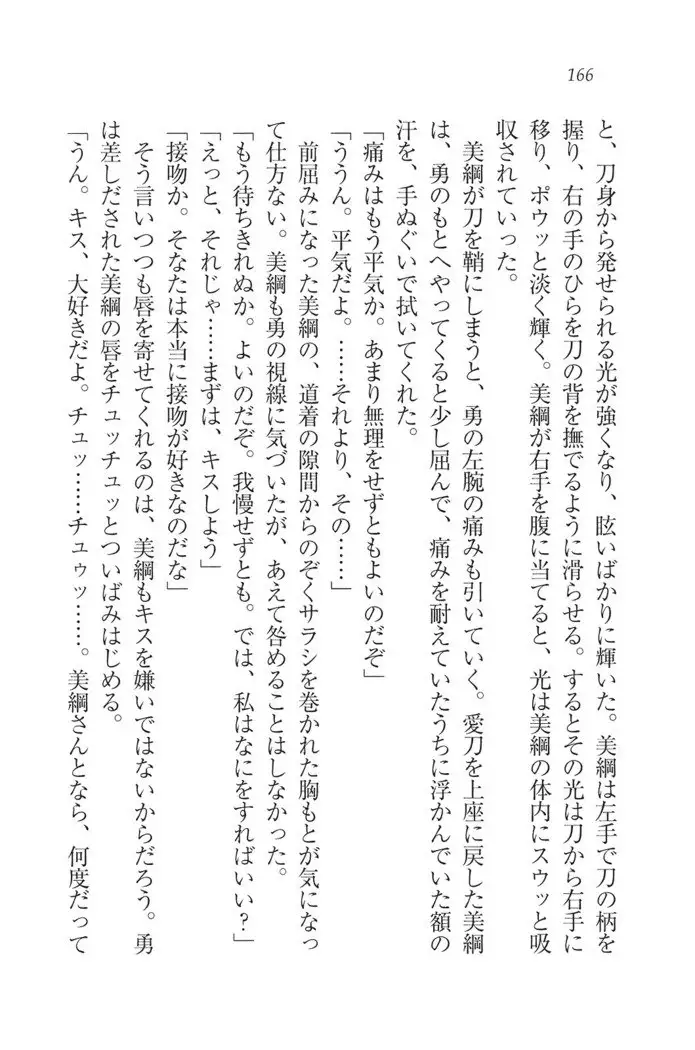 166
と、刀身から発せられる光が強くなり、眩いばかりに輝いた。美綱は左手で刀の柄を
握り、右の手のひらを刀の背を撫でるように滑らせる。するとその光は刀から右手に
移り、ポウッと淡く輝く。美綱が右手を腹に当てると、光は美綱の体内にスウッと吸
収されていった。
美綱が刀を鞘にしまうと、勇の左腕の痛みも引いていく。愛刀を上座に戻した美綱
は、勇のもとへやってくると少し屈んで、痛みを耐えていたうちに浮かんでいた額の
汗を、手ぬぐいで拭いてくれた。
「痛みはもう平気か。あまり無理をせずともよいのだぞ」
「ううん。平気だよ。……それより、その……」
前屈みになった美綱の、道着の隙間からのぞくサラシを巻かれた胸もとが気になっ
て仕方ない。美綱も勇の視線に気づいたが、あえて咎めることはしなかった。
「もう待ちきれぬか。よいのだぞ。我慢せずとも。では、私はなにをすればいい？」
「えっと、それじゃ……まずは、キスしよう」
「接吻か。そなたは本当に接吻が好きなのだな」
そう言いつつも唇を寄せてくれるのは、美綱もキスを嫌いではないからだろう。勇
は差しだされた美綱の唇をチュッチュッとついばみはじめる。
「うん。キス、大好きだよ。チュッ……チュゥッ……。美綱さんとなら、何度だって